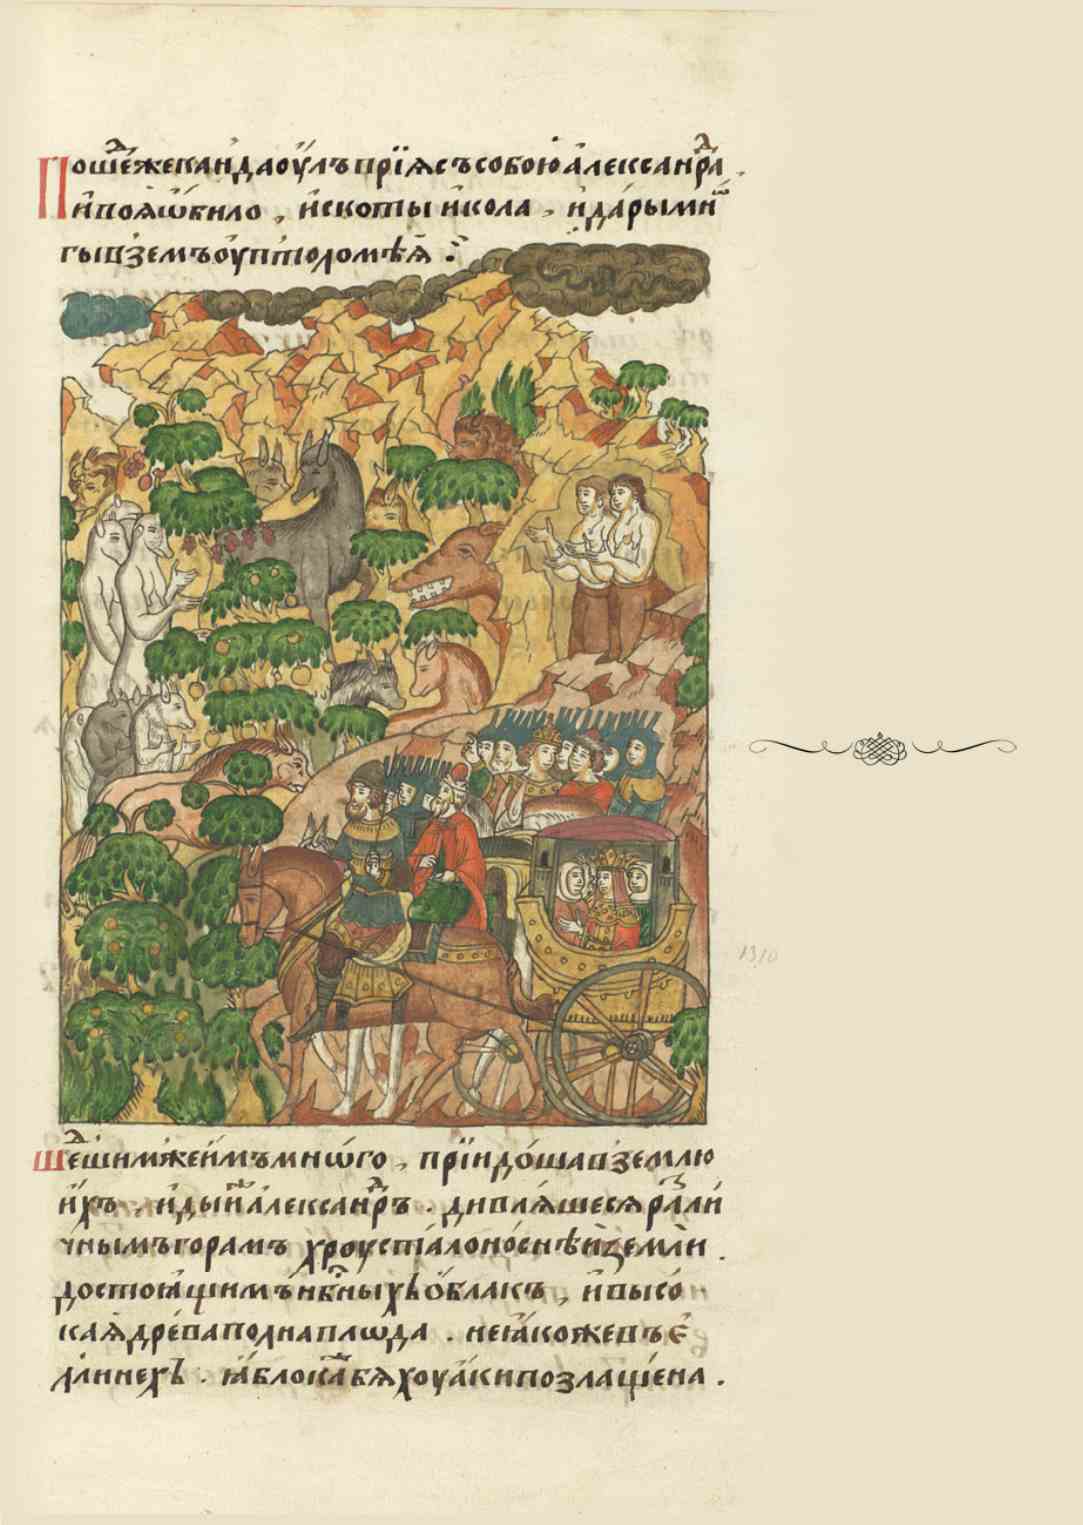 Поше́же кандаоу́лъ прїя съ собою а́леѯандра
и поя ѡбило , и скоты и кола , и да́ры мнѡ
гы взем оу птоломѣя :
Ше́дшим же и́мъ мнѡ́го , прїидо́ша в зе́млю
и́хъ . и ды́й а́лександръ . дивля́шеся разли
чнымъ горамъ хроуста́лоно́снѣй земли .
достоя́щимъ нб҃ныхъ о́блакъ , и высо
кая дре́ва полна плѡда . не я́коже въ є́
ллинехъ . я́блока бяхоу а́ки позлаще́на .
1310